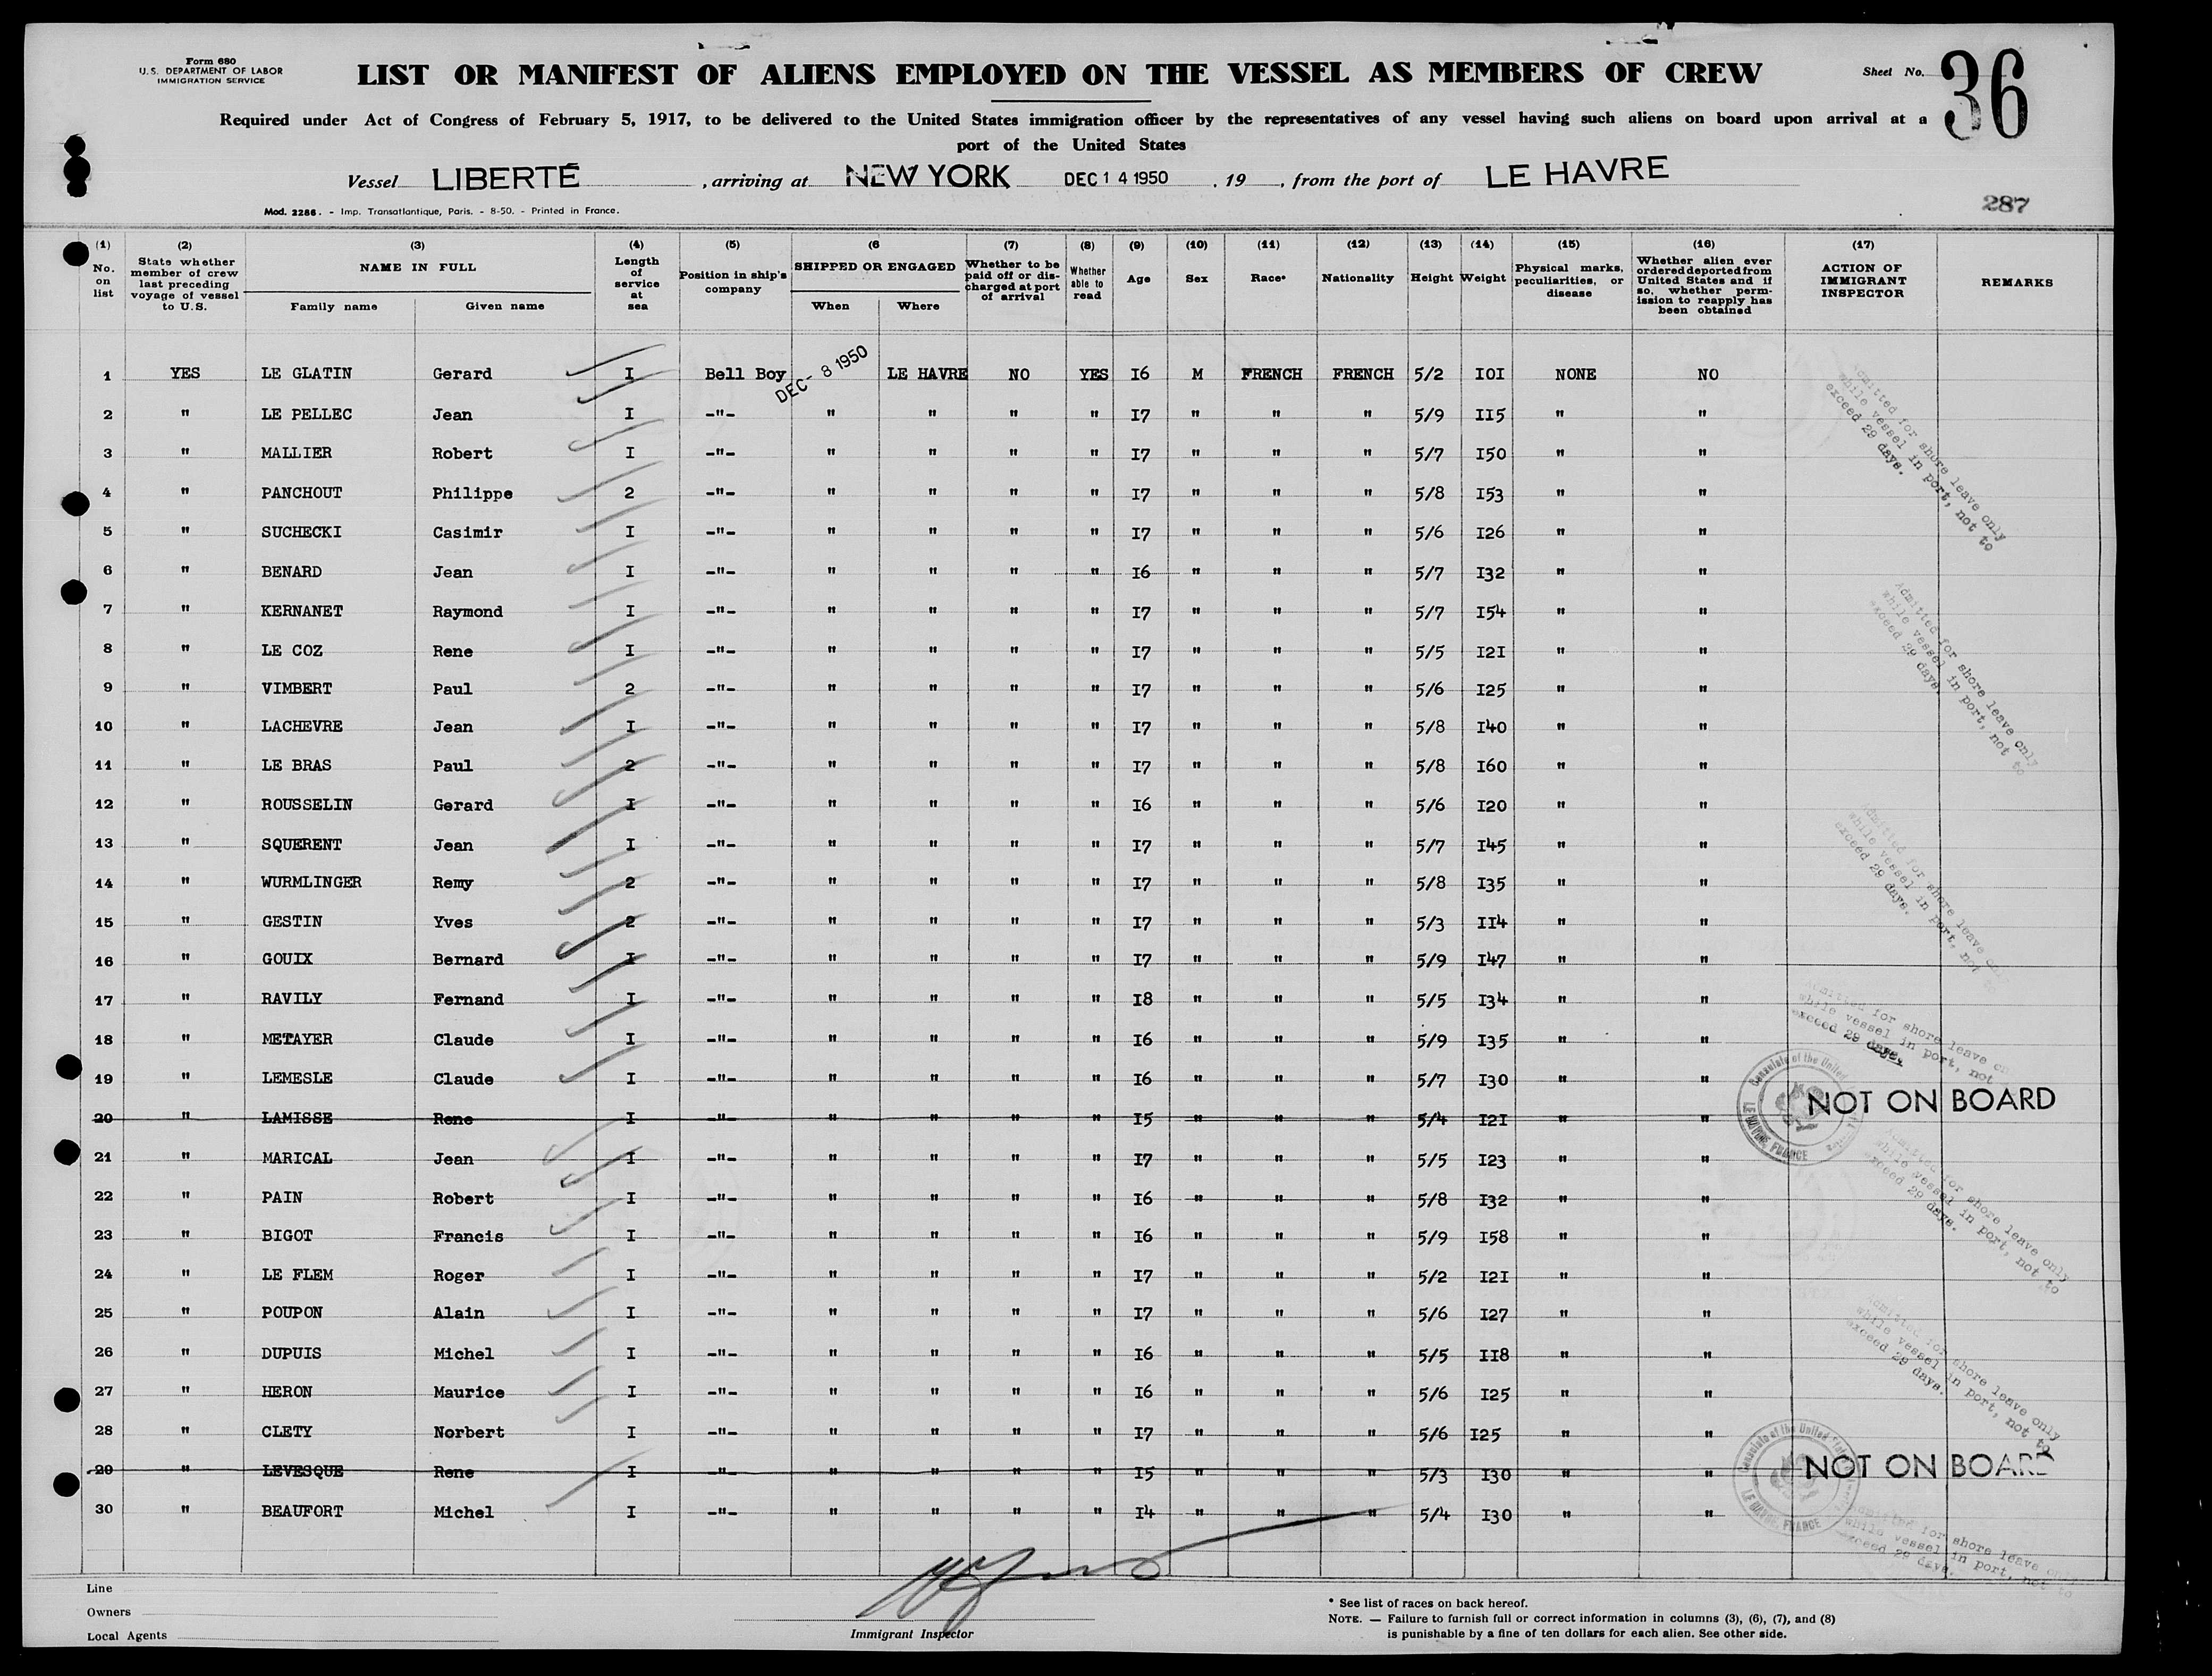 Form 680
U.S. DEPARTMENT OF LABOR
IMMIGRATION SERVICE
LIST OR MANIFEST OF ALIENS EMPLOYED ON THE VESSEL AS MEMBERS OF CREW
Sheet No. 36
Required under Act of Congress of February 5, 1917, to be delivered to the United States immigration officer by the representatives of any vessel having such aliens on board upon arrival at a
port of the United States
Vessel LIBERTÉ , arriving at NEW YORK DEC 14 1950 , 19 , from the port of LE HAVRE
Mod. 2286. - Imp. Transatlantique, Paris. - 8-50. - Printed in France.
287
(1) No. on list
(2) State whether member of crew last preceding voyage of vessel to U.S.
(3) NAME IN FULL
Family name Given name
(4) Length of service at sea
(5) Position in ship's company
(6 SHIPPED OR ENGAGED
When Where
(7) Whether to be paid off or discharged at port of arrival
(8) Whether able to read
(9) Age
(10) Sex
(11) Race*
(12) Nationality
(13) Height
(14) Weight
(15) Physical marks, peculiarities, or disease
(16) Whether alien ever ordered deported from United States and if so, whether permission to reapply has been obtained
(17) ACTION OF IMMIGRANT INSPECTOR
REMARKS
1 YES LE GLATIN Gerard I Bell Boy DEC - 8 1950 LE HAVRE NO YES I6 M FRENCH FRENCH 5/2 IOI NONE NO
2 " LE PELLEC Jean I -"- " " " " I7 " " " 5/9 II5 " "
3 " MALLIER Robert I -"- " " " " I7 " " " 5/7 I50 " "
4 " PANCHOUT Philippe 2 -"- " " " " I7 " " " 5/8 I53 " "
5 " SUCHECKI Casimir I -"- " " " " I7 " " " 5/6 I26 " "
6 " BENARD Jean I -"- " " " " I6 " " " 5/7 I32 " "
7 " KERNANET Raymond I -"- " " " " I7 " " " 5/7 I54 " "
8 " LE COZ Rene I -"- " " " " I7 " " " 5/5 I2I " "
9 " VIMBERT Paul 2 -"- " " " " I7 " " " 5/6 I25 " "
10 " LACHEVRE Jean I -"- " " " " I7 " " " 5/8 I40 " "
11 " LE BRAS Paul 2 -"- " " " " I7 " " " 5/8 I60 " "
12 " ROUSSELIN Gerard I -"- " " " " I6 " " " 5/6 I20 " "
13 " SQUERENT Jean I -"- " " " " I7 " " " 5/7 I45 " "
14 " WURMLINGER Remy 2 -"- " " " " I7 " " " 5/8 I35 " "
15 " GESTIN Yves 2 -"- " " " " I7 " " " 5/3 II4 " "
16 " GOUIX Bernard I -"- " " " " I7 " " " 5/9 I47 " "
17 " RAVILY Fernand I -"- " " " " I8 " " " 5/5 I34 " "
18 " METAYER Claude I -"- " " " " I6 " " " 5/9 I35 " "
19 " LEMESLE Claude I -"- " " " " I6 " " " 5/7 I30 " "
20 " LAMISSE Rene I -"- " " " " I5 " " " 5/4 I2I " " NOT ON BOARD
21 " MARICAL Jean I -"- " " " " I7 " " " 5/5 I23 " "
22 " PAIN Robert I -"- " " " " I6 " " " 5/8 I32 " "
23 " BIGOT Francis I -"- " " " " I6 " " " 5/9 I58 " "
24 " LE FLEM Roger I -"- " " " " I7 " " " 5/2 I2I " "
25 " POUPON Alain I -"- " " " " I7 " " " 5/6 I27 " "
26 " DUPUIS Michel I -"- " " " " I6 " " " 5/5 II8 " "
27 " HERON Maurice I -"- " " " " I6 " " " 5/6 I25 " "
28 " CLETY Norbert I -"- " " " " I7 " " " 5/6 I25 " "
29 " LEVESQUE Rene I -"- " " " " I5 " " " 5/3 I30 " " NOT ON BOARD
30 " BEAUFORT Michel I -"- " " " " I4 " " " 5/4 I30 " "
Admitted for shore leave only
while vessel in port, not to
exceed 29 days.
Admitted for shore leave only
while vessel in port, not to
exceed 29 days.
Admitted for shore leave only
while vessel in port, not
exceed 29 days.
Admitted for shore leave
while vessel in port, not
exceed 29 days.
Consulate of the United
LE HAVRE, FRANCE
Admitted for shore leave only
while vessel in port, not to
exceed 29 days.
Admitted for shore leave only
while vessel in port, not to
exceed 29 days.
Consulate of the United States
LE HAVRE, FRANCE
Admitted for shore leave
while vessel in port, not
exceed 29 days.
Line
Owners
Local Agents
Immigrant Inspector
* See list of races on back hereof.
NOTE. — Failure to furnish full or correct information in columns (3), (6), (7), and (8)
is punishable by a fine of ten dollars for each alien. See other side.